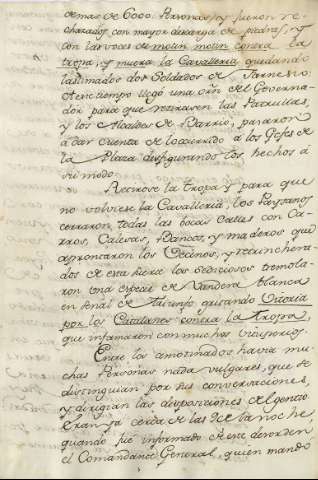 de mas de 6000. Personas, y fueron re-
chazados con mayor descarga de piedras, y
con las voces de motin motin contra la
tropa, y muera la Cavalleria, quedando
lastimados dos Soldados de
A este tiempo llegó una orn. del Governa-
dor para que retirasen las Patrullas,
y los Alcaldes de Barrio, pasaron
a dar cuenta de lo ocurrido a los Gefes de
la Plaza desfigurando los hechos á
su modo.
Retirose la tropa y para que
no volviese la Cavalleria, los Paysanos
cerraron todas las bocas calles con Ca-
rros, Calesas, Bancos, y maderos que
aprontaron los Vecinos, y
dos de esta suerte los sediciosos tremola-
ron una especie de Vandera blanca
en señal de triunfo gritando Vitoria
por los Catalanes contra la tropa,
que infamaron con muchos vituperios.
Entre los amotinados havia mu-
chas Personas nada vulgares, que se
distinguian por sus conversaciones,
y dirigian las disposiciones del gentio
Eran ya cerca de las de la noche,
quando fue informado de este desorden
el Comandante General, quien mandó